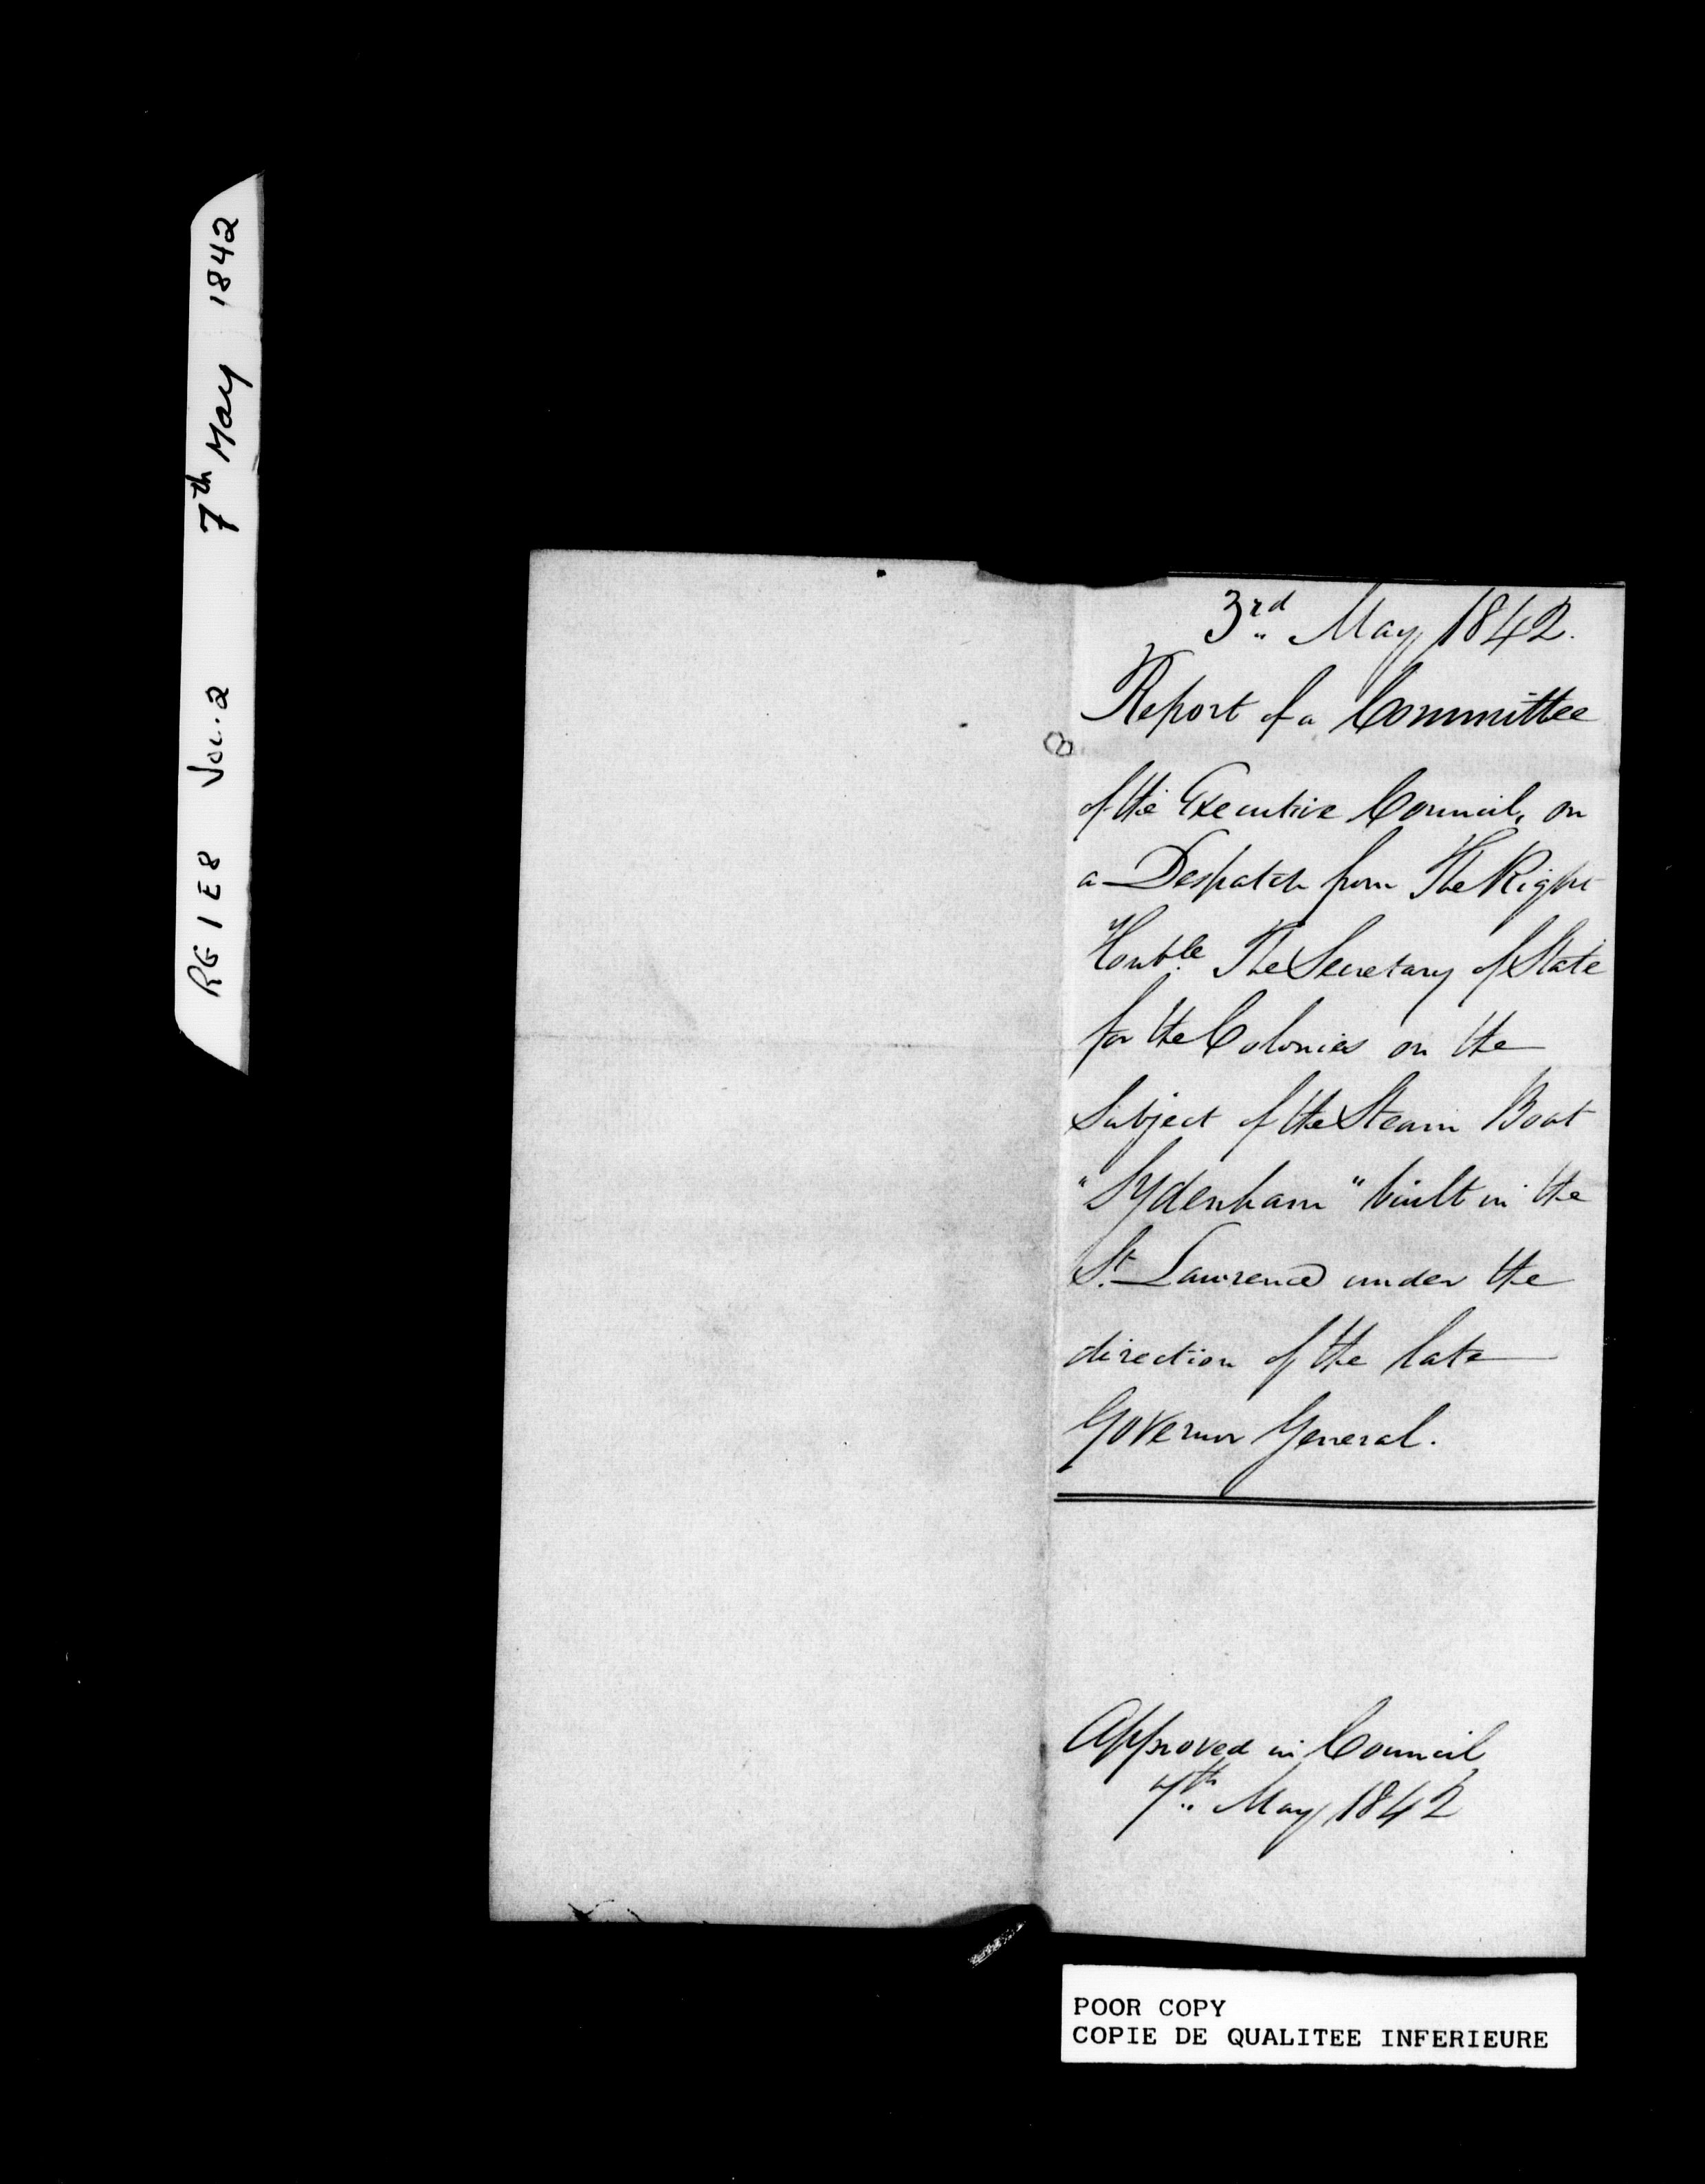 RG 1 E8 Vol. 2 7th May 1842
3rd May 1842.
Report of a Committee
of the Executive Council, on
a Despatch from The Right
Honble. The Secretary of State
for the Colonies on the
Subject of the Steam Boat
"Sydenham" built in the
St. Lawrence under the
direction of the late
Governor General.
Approved in Council
7th May 1842
POOR COPY
COPIE DE QUALITEE INFERIEURE